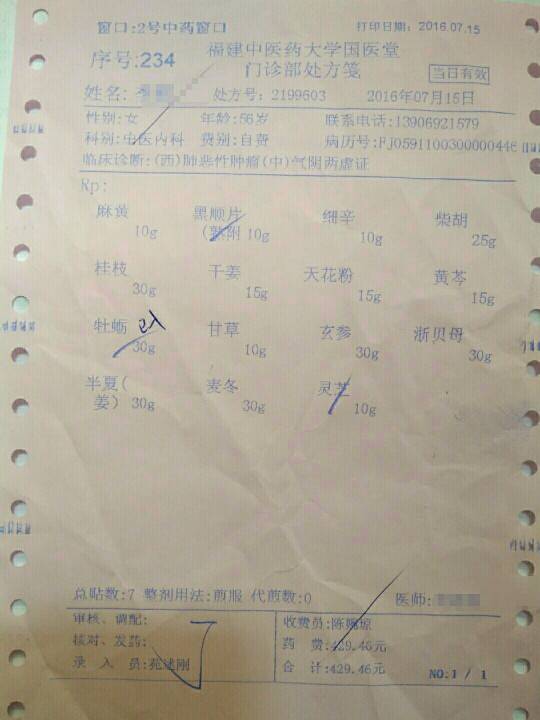 窗口:2号中药窗口 打印日期: 2016.07.15
序号:234 福建中医药大学国医堂
门诊部处方笺 当日有效
姓名: 处方号: 2199603 2016年07月15日
性别:女 年龄:56岁 联系电话:13906921579
科别:中医内科 费别:自费 病历号:FJ059110030000044
临床诊断:(西)肺恶性肿瘤(中)气阴两虚证
Rp:
麻黄 黑顺片 细辛 柴胡
10g (熟附 10g 10g 25g
桂枝 干姜 天花粉 黄芩
30g 15g 15g 15g
牡蛎 甘草 玄参 浙贝母
30g 10g 30g 30g
半夏( 麦冬 灵芝
姜) 30g 30g 10g
总贴数:7 整剂用法:煎服 代煎数:0 医师:
审核、调配: 收费员:陈婉琼
核对、发药: 药 费:429.46元
录 入 员:苑述刚 合 计:429.46元 NO:1 / 1